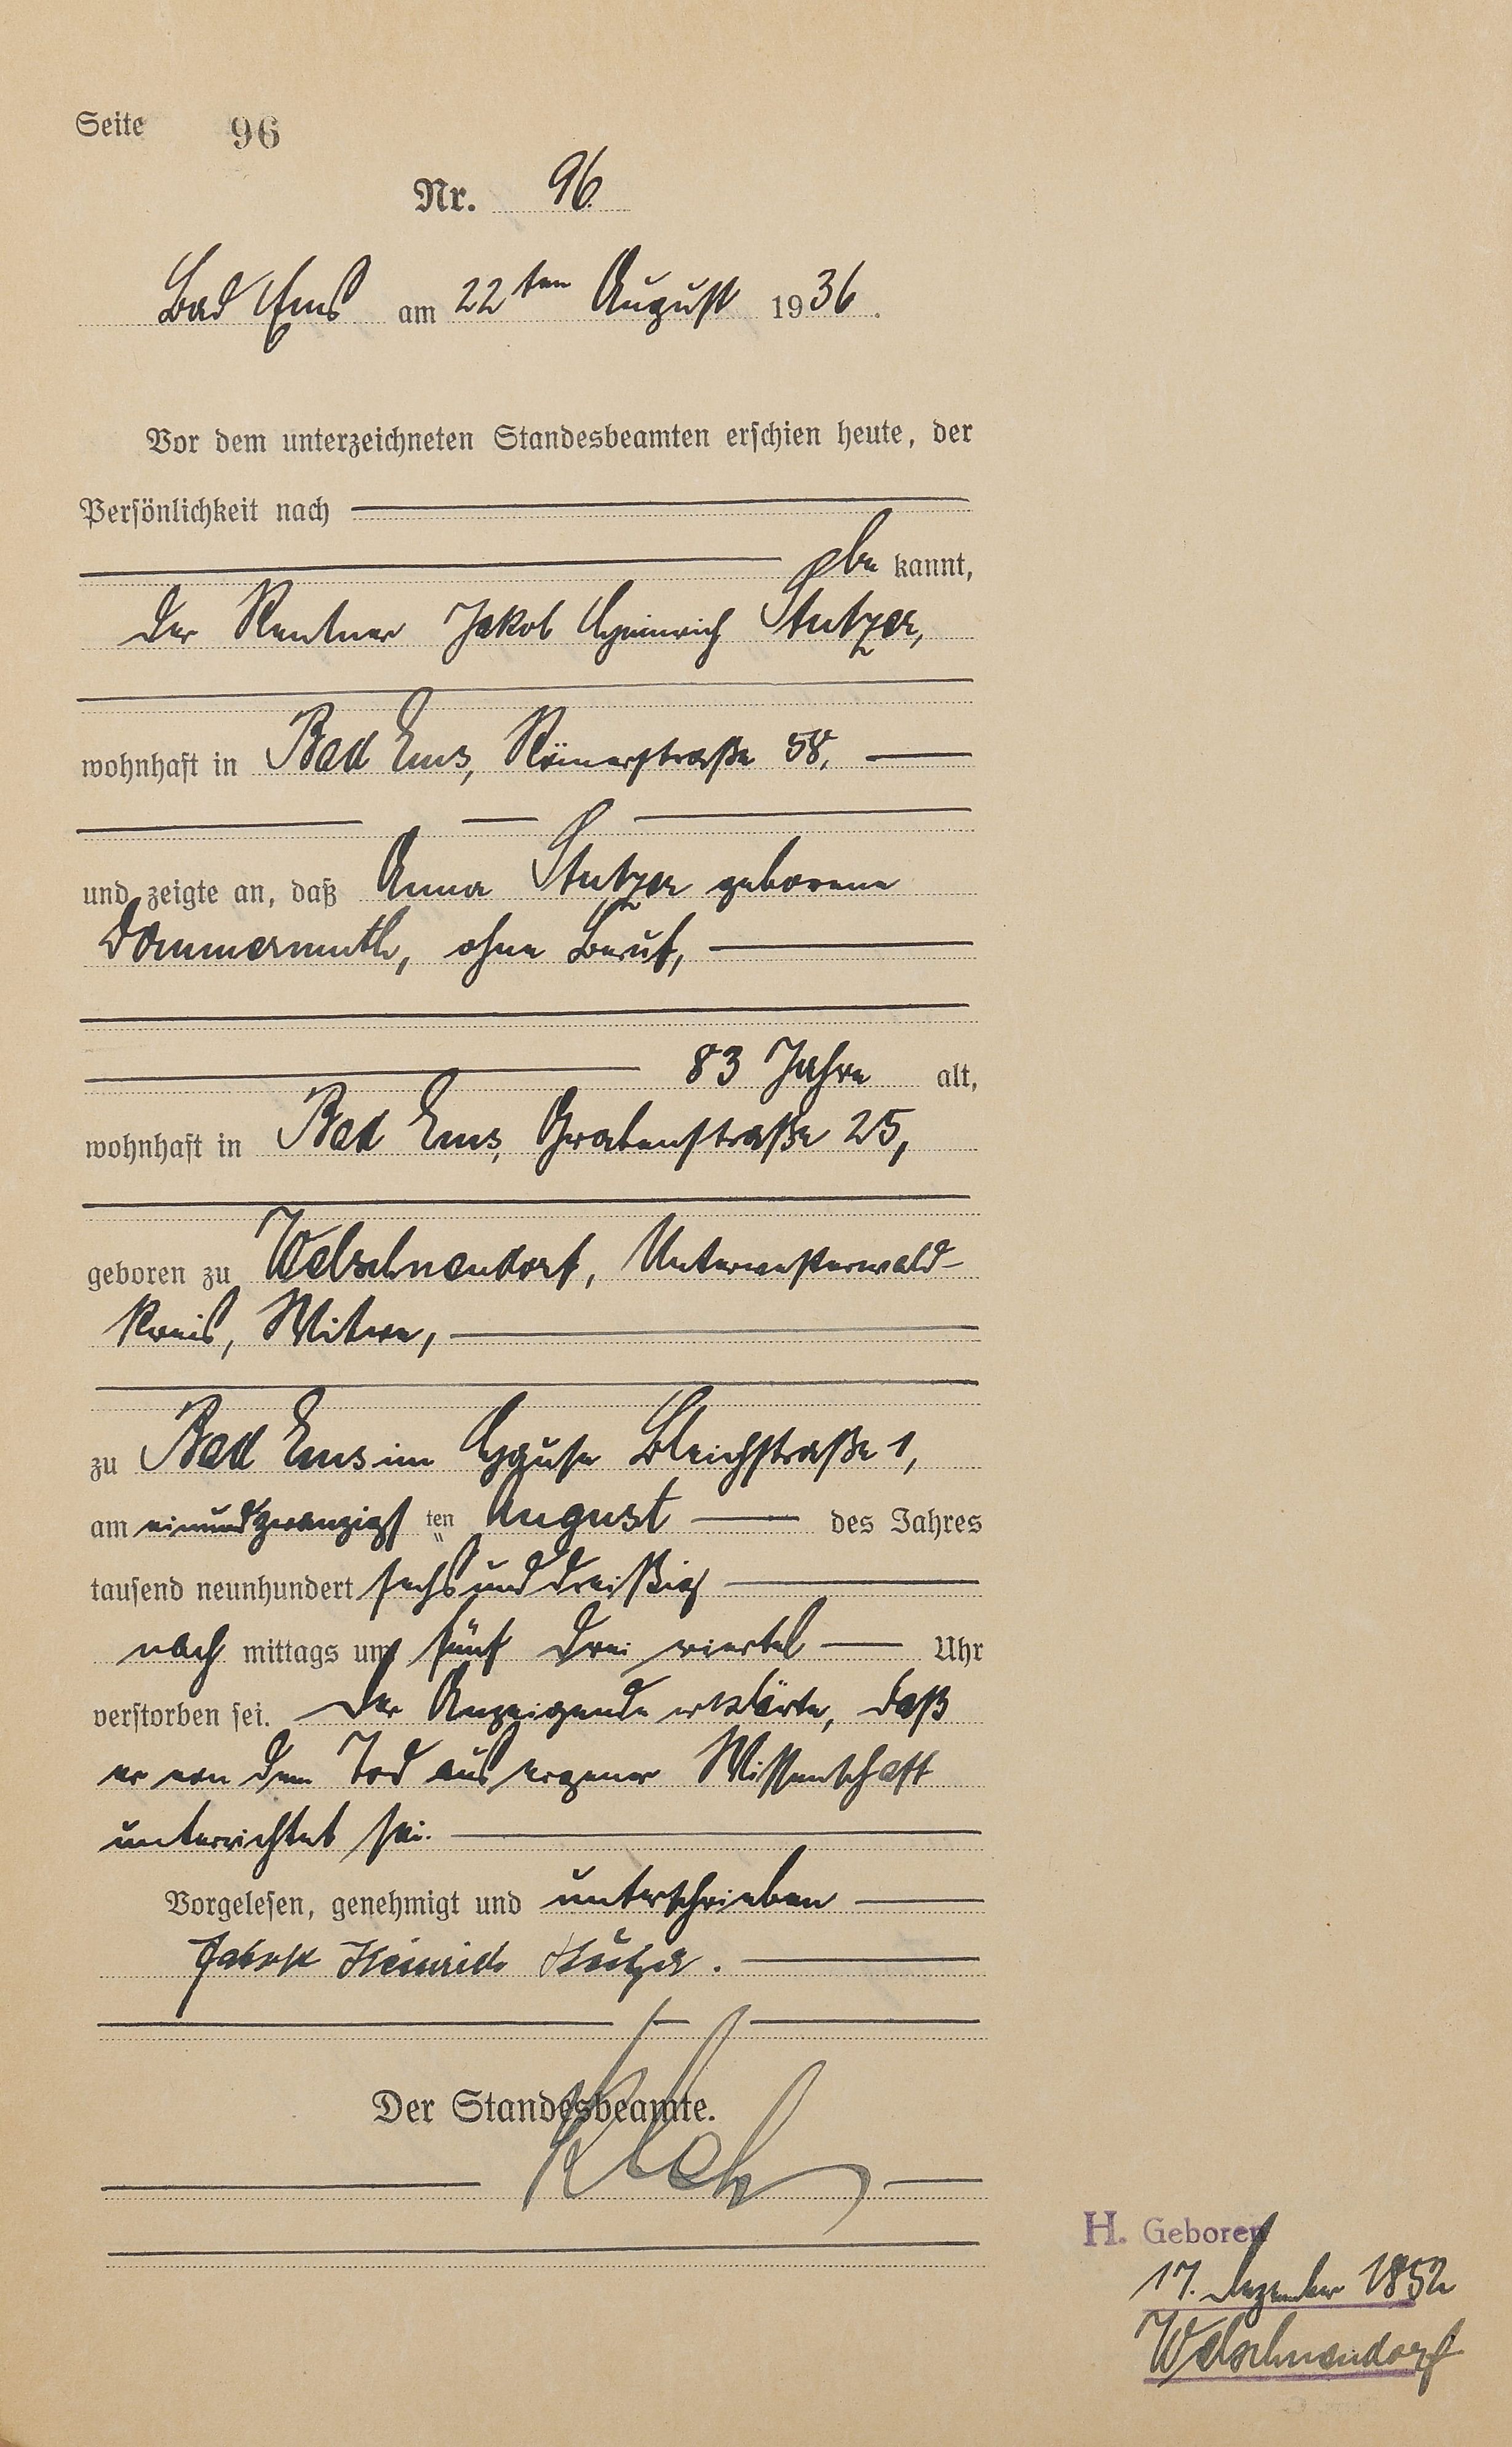 Seite 96
Nr. 96.
Bad Ems am 22ten August 1936.
Vor dem unterzeichneten Standesbeamten erschien heute, der
Persönlichkeit nach
be kannt,
der Rentner Jakob Heinrich Stutzer,
wohnhaft in Bad Ems, Römerstraße 58,
und zeigte an, daß Anna Stutzer geborene
Dommermuth, ohne Beruf,
83 Jahre alt,
wohnhaft in Bad Ems, Grabenstraße 25,
geboren zu Welschneudorf, Unterwesterwald-
kreis, Witwe,
zu Bad Ems im Hause Bleichstraße 1,
am einundzwanzigsten August des Jahres
tausend neunhundert sechsunddreißig
nach mittags um fünf drei viertel Uhr
verstorben sei. Der Anzeigende erklärte, daß
er von dem Tod aus eigener Wissenschaft
unterrichtet sei.
Vorgelesen, genehmigt und unterschrieben
Jakob Heinrich Stutzer.
Der Standesbeamte.
H. Geboren
17. Dezember 1852
Welschneudorf